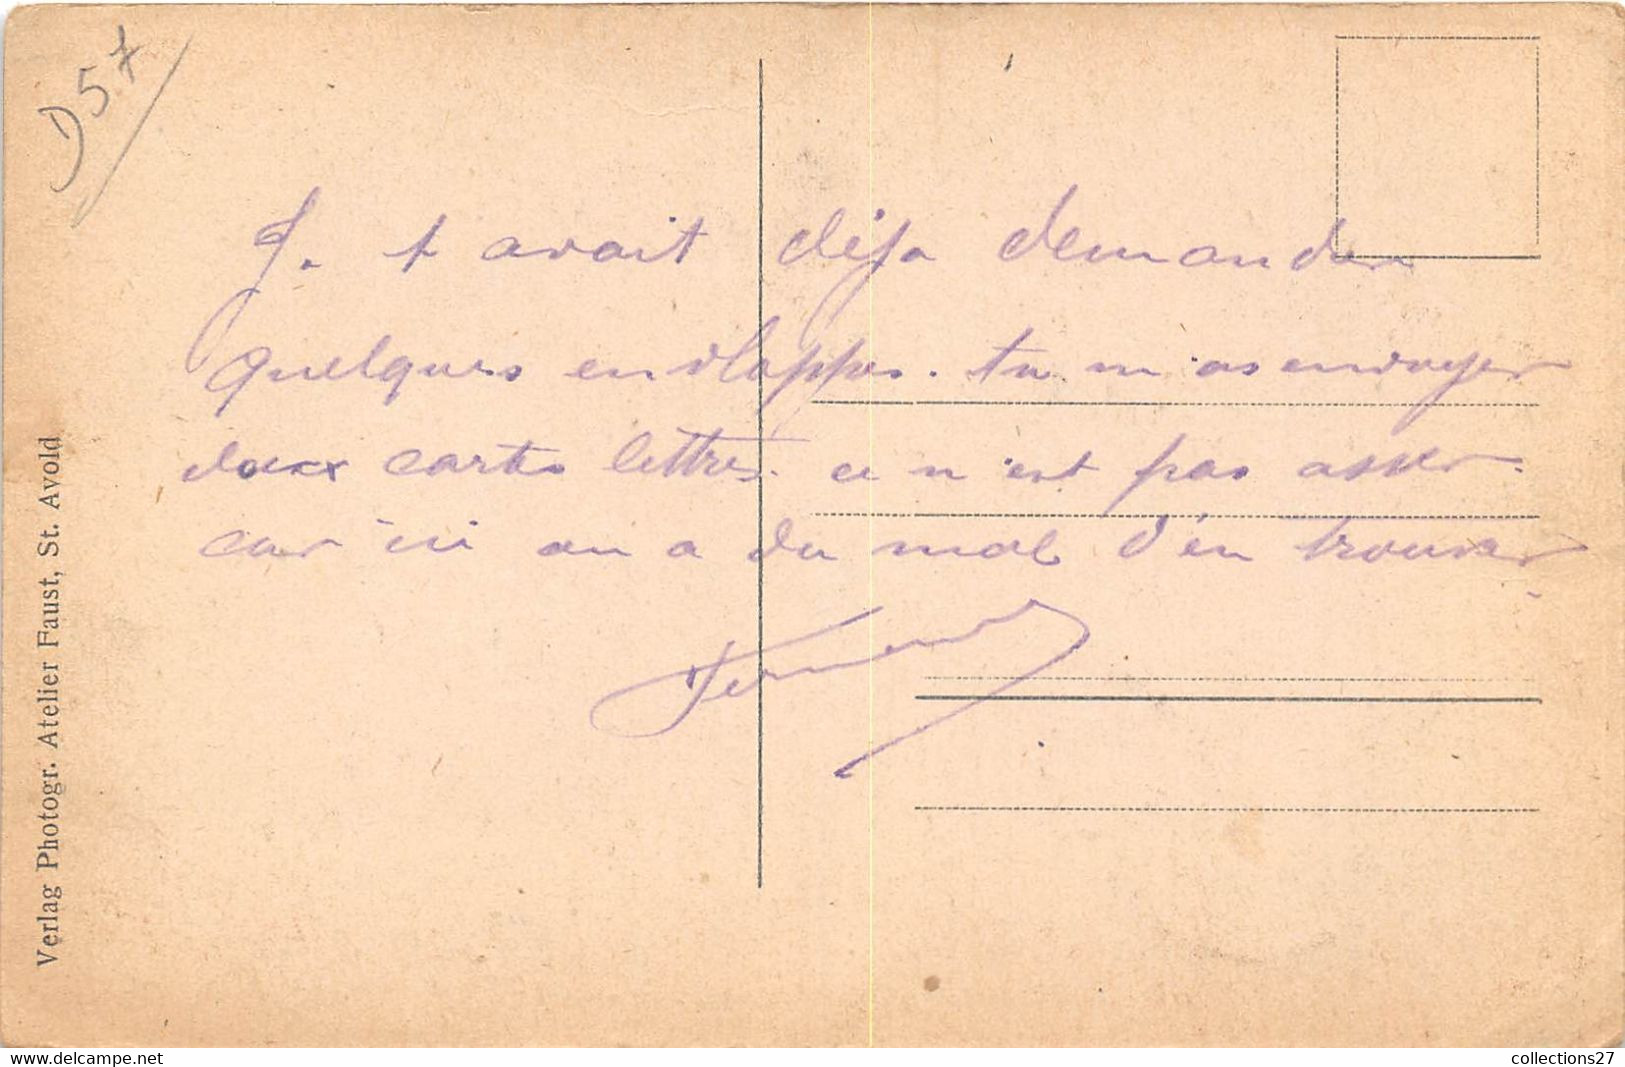 D57
Je t avait déja demander
quelques envloppes. tu m as envoyer
deux cartes lettres. ce n'est pas asser.
car ici on a du mal d'en trouver
Fernand
Verlag Photogr. Atelier Faust, St. Avold
www.delcampe.net
collections27